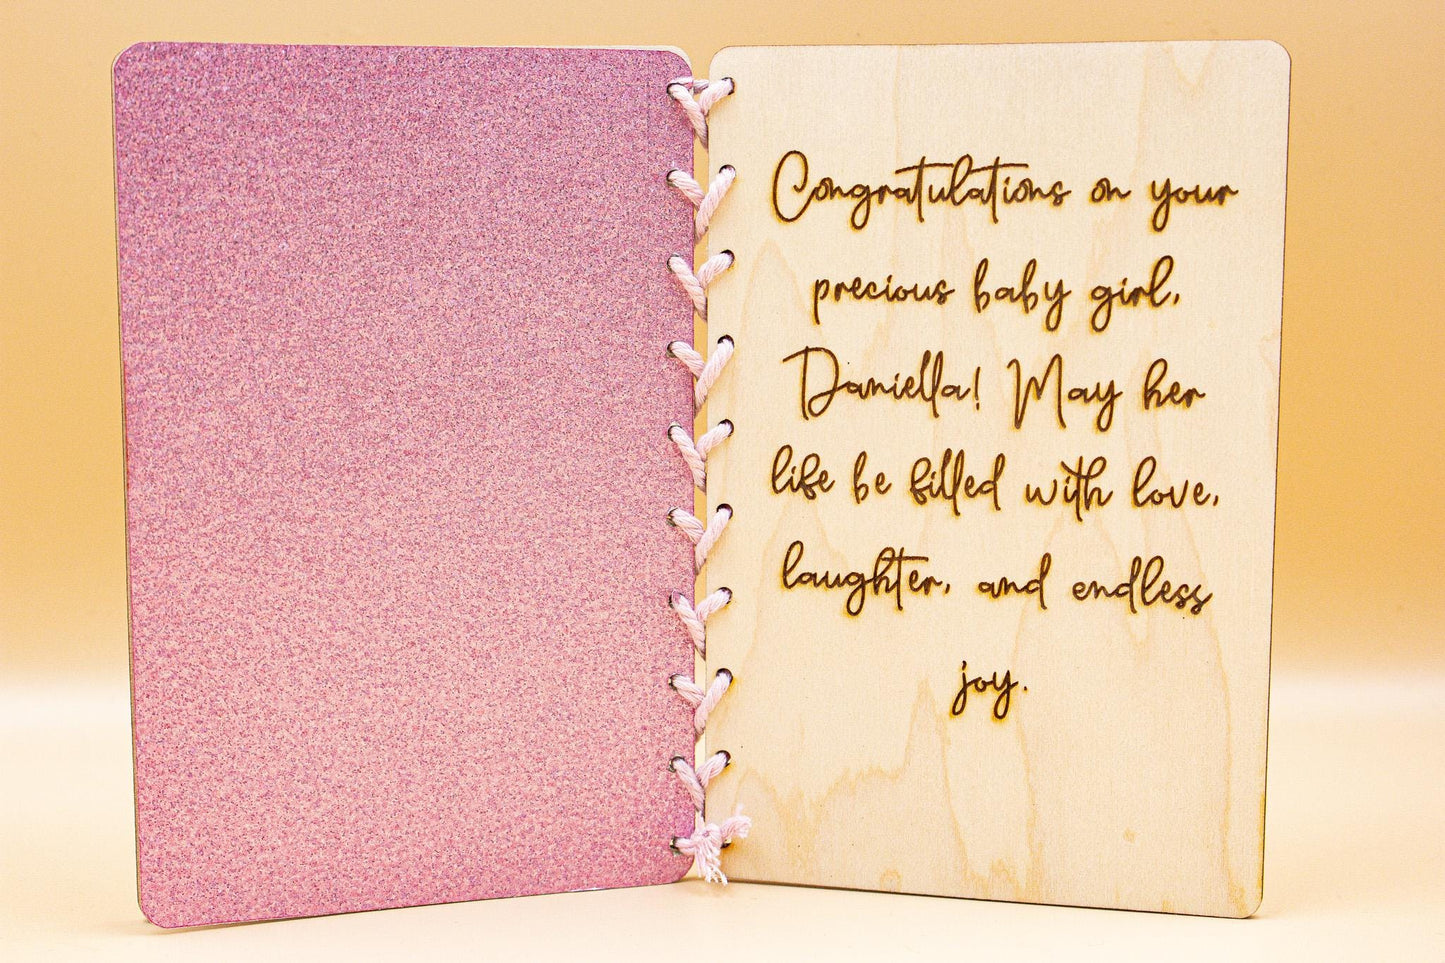 Congratulations on your
precious baby girl,
Daniella! May her
life be filled with love,
laughter, and endless
joy.